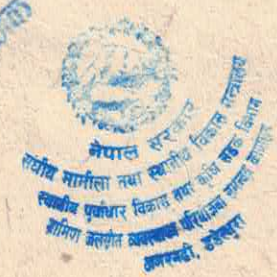 नेपाल सरकार
संघीय मामिला तथा स्थानीय विकास मन्त्रालय
स्थानीय पूर्वाधार विकास तथा कृषि सडक विभाग
ग्रामिण जलस्रोत व्यवस्थापन परियोजना
डडेल्धुरा